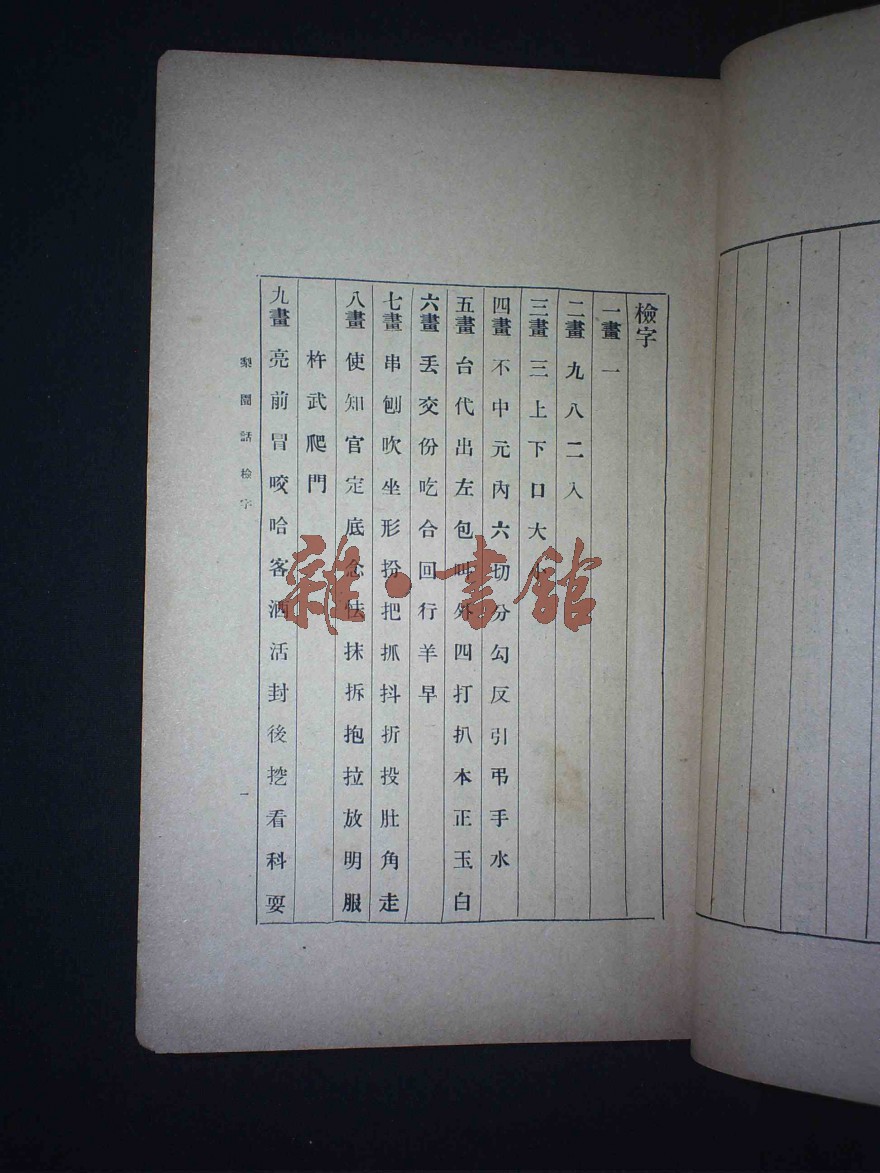 檢字
一畫 一
二畫 九八二入
三畫 三上下口大小
四畫 不中元內六切分勾反引弔手水
五畫 台代出左包叫外四打扒本正玉白
六畫 丢交份吃合回行羊早
七畫 串刨吹坐形扮把抓抖折投肚角走
八畫 使知官定底念怯抹拆抱拉放明服
杵武爬門
九畫 亮前冒咬哈客洒活封後挖看科耍
梨園話 檢字
一
雜·書館